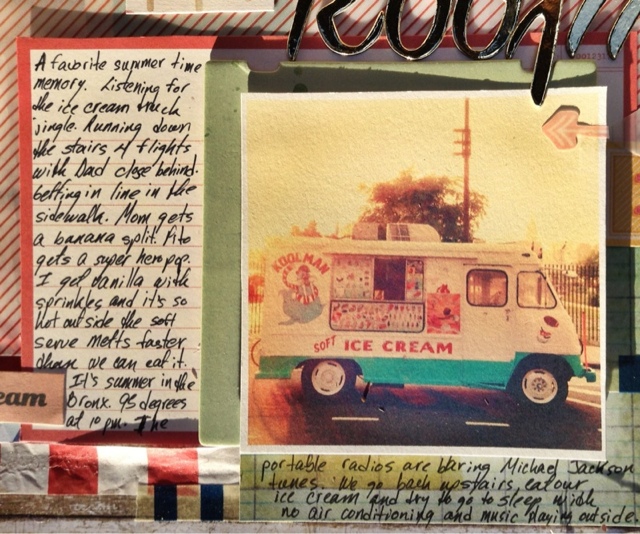 A favorite summer time
memory. Listening for
the ice cream truck
jingle. Running down
the stairs 4 flights
with Dad close behind.
getting in line in the
sidewalk. Mom gets
a banana split. Pito
gets a super hero pop.
I get vanilla with
sprinkles and it's so
hot outside the soft
serve melts faster
than we can eat it.
It's summer in the
Bronx. 95 degrees
at 10 pm. The
eam
KOOLMAN
SOFT ICE CREAM
portable radios are blaring Michael Jackson
tunes. We go back upstairs, eat our
ice cream and try to go to sleep with
no air conditioning and music playing outside.